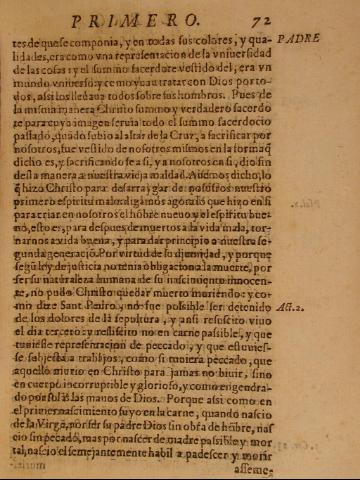 PRIMERO. 72
PADRE
tes de que se componia, y en todas sus colores, y qua-
lidades, era como vna representacion de la vniuersidad
de las cosas: y el summo sacerdote vestido del, era vn
mundo vniuerso: y como yua a tratar con Dios por to-
dos, assi los lleuaua todos sobre sus hombros. Pues de
la misma manera Christo summo y verdadero sacerdo
te para cuya imagen seruia todo el summo sacerdocio
passado, quando subio al altar de la Cruz, a sacrificar por
nosotros, fue vestido de nosotros mismos en la forma q̃
dicho es, y sacrificando se a si, y a nosotros en si, dio fin
desta manera a nuestra vieja maldad. Auemos dicho, lo
q̃ hizo Christo para desarraygar de nosotros nuestro
primero espiritu malo: digamos agora lo que hizo en si
para criar en nosotros el hõbre nueuo y el espiritu bue-
no, esto es, para despues de muertos a la vida mala, tor-
narnos a vida buena, y para dar principio a nuestra se-
gunda generacion. Por virtud de su diuinidad, y porque
segũ ley de justicia no tenia obligacion a la muerte, por
ser su naturaleza humana de su nascimiento innocen-
te, no pudo Christo quedar muerto muriendo: y co-
mo dize Sant Pedro, no fue possible ser detenido
Act. 2.
de los dolores de la sepultura, y ansi resuscito viuo
el dia tercero: y resuscito no en carne passible, y que
tuuiesse representacion de peccado, y que estuuies-
se subjecta a trabajos, como si tuuiera peccado, que
aquello murio en Christo para jamas no biuir, sino
en cuerpo incorruptible y glorioso, y como engendra-
do por solas las manos de Dios. Porque assi como en
el primer nascimiento suyo en la carne, quando nascio
de la Virgẽ, por ser su padre Dios sin obra de hõbre, nas
cio sin peccado, mas por nascer de madre passible y mor
tal, nascio el semejantemente habil a padescer y morir
asseme-